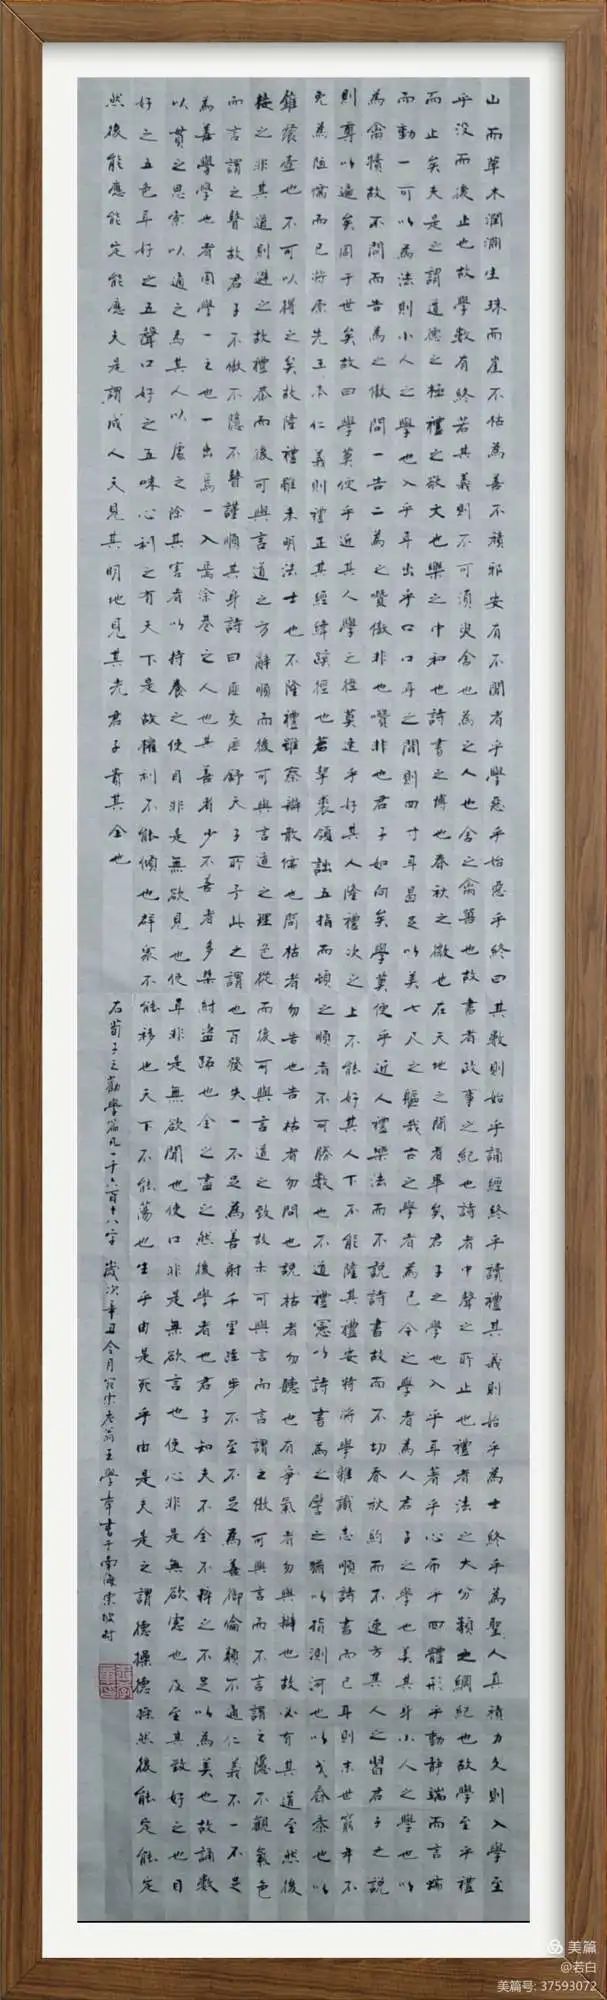 山而草木潤淵生珠而崖不枯為善不積邪安有不聞者乎學惡乎始惡乎終曰其數則始乎誦經終乎讀禮其義則始乎為士終乎為聖人真積力久則入學至
乎沒而後止也故學數有終若其義則不可須臾舍也為之人也舍之禽獸也故書者政事之紀也詩者中聲之所止也禮者法之大分類之綱紀也故學至乎禮
而止矣夫是之謂道德之極禮之敬文也樂之中和也詩書之博也春秋之微也在天地之間者畢矣君子之學也入乎耳著乎心布乎四體形乎動靜端而言蝡
而動一可以為法則小人之學也入乎耳出乎口口耳之間則四寸耳曷足以美七尺之軀哉古之學者為己今之學者為人君子之學也美其身小人之學也以
為禽犢故不問而告為之傲問一告二為之囋傲非也囋非也君子如向矣學莫便乎近人禮樂法而不說詩書故而不切春秋約而不速方其人之習君子之說
則尊以遍矣周于世矣故曰學莫便乎近其人學之徑莫速乎好其人隆禮次之上不能好其人下不能隆其禮安特將學雜識志順詩書而已耳則末世窮年不
免為陋儒而已將原先王本仁義則禮正其經緯蹊徑也若挈裘領詘五指而頓之順者不可勝數也不道禮憲以詩書為之譬之猶以指測河也以戈舂黍也以
錐飡壺也不可以得之矣故隆禮雖未明法士也不隆禮雖察辯散儒也問枯者勿告也告枯者勿問也說枯者勿聽也有爭氣者勿與辯也故必有其道至然後
接之非其道則避之故禮恭而後可與言道之方辭順而後可與言道之理色從而後可與言道之致故未可與言而言謂之傲可與言而不言謂之隱不觀氣色
而言謂之瞽故君子不傲不隱不瞽謹順其身詩曰匪交匪舒天子所予此之謂也百發失一不足為善射千里跬步不至不足為善御倫類不通仁義不一不足
為善學學也者固學一之也一出焉一入焉涂巷之人也其善者少不善者多桀紂盜跖也全之盡之然後學者也君子知夫不全不粹之不足以為美也故誦數
以貫之思索以通之為其人以處之除其害者以持養之使目非是無欲見也使耳非是無欲聞也使口非是無欲言也使心非是無欲慮也及至其致好之也目
好之五色耳好之五聲口好之五味心利之有天下是故權利不能傾也群眾不能移也天下不能蕩也生乎由是死乎由是夫是之謂德操德操然後能定能定
然後能應能定能應夫是謂成人天見其明地見其光君子貴其全也
右荀子之勸學篇凡一千六百十八字 歲次辛丑今月 王學 書于南海 村
美篇
@若白
美篇号: 37593072